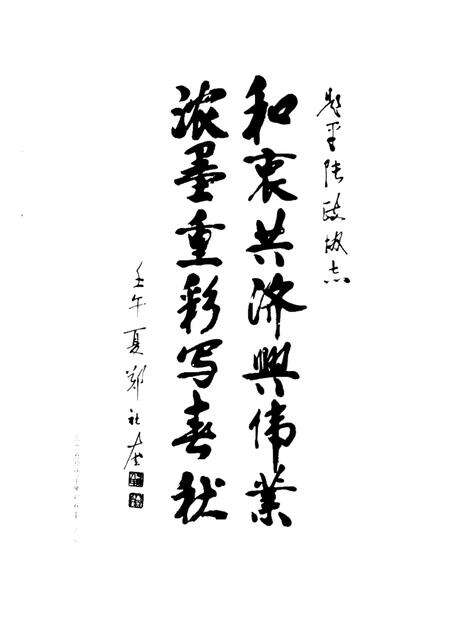 题平陆政协志
和衷共济興伟業
浓墨重彩写春秋
壬午夏郑社奎